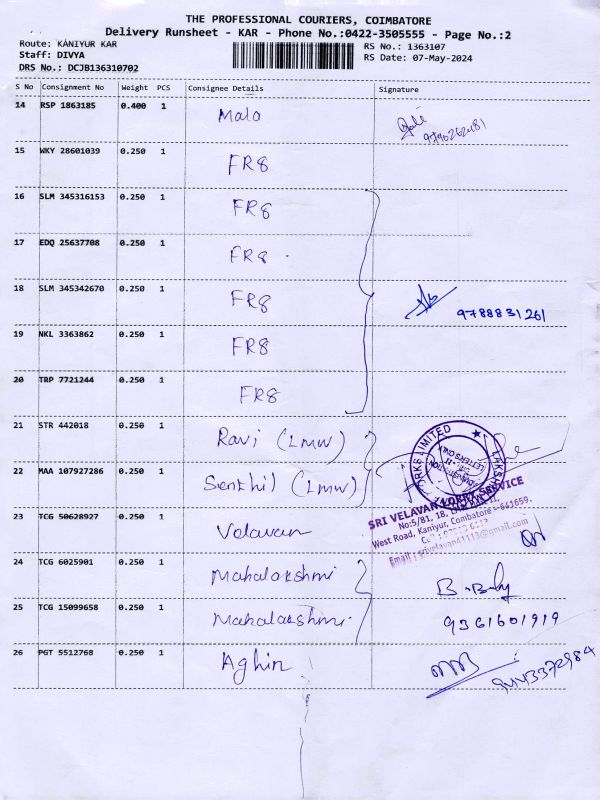 THE PROFESSIONAL COURIERS, COIMBATORE
Delivery Runsheet - KAR - Phone No.:0422-3505555 - Page No.:2
Route: KANIYUR KAR
Staff: DIVYA
DRS No.: DCJB136310702
RS No.: 1363107
RS Date: 07-May-2024
S No Consignment No Weight PCS Consignee Details Signature
14 RSP 1863185 0.400 1 Malo
15 WKY 28601039 0.250 1 FR8
16 SLM 345316153 0.250 1 FR8
17 EDQ 25637708 0.250 1 FR8
18 SLM 345342670 0.250 1 FR8 9788831261
19 NKL 3363862 0.250 1 FR8
20 TRP 7721244 0.250 1 FR8
21 STR 442018 0.250 1 Ravi (LMW)
22 MAA 107927286 0.250 1 Senthil (LMW)
LETTERS ONLY
SRI VELAVAN LORRY SERVICE
West Road, Kaniyur, Coimbatore - 641659.
Email : srivelavan41113@gmail.com
23 TCG 50628927 0.250 1 Velavan
24 TCG 6025901 0.250 1 Mahalakshmi
25 TCG 15099658 0.250 1 Mahalakshmi 9361601919
26 PGT 5512768 0.250 1 Aghin 9443372984